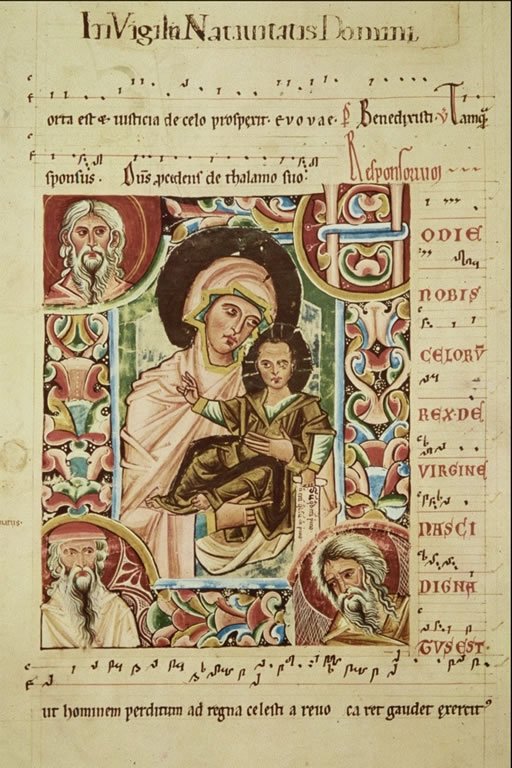 In Vigilia Nativitatis Domini
orta est & iusticia de celo prospexit. e v o v a e. P Benedixisti. V Tamqȝ
sponsus. Dn̄s pcedens de thalamo suo.
Responsorium
ODIE
NOBIS
CELORV̄
REX DE
VIRGINE
NASCI
DIGNA
TVS EST
ut hominem perditum ad regna celestia revo ca ret gaudet exercit⁹